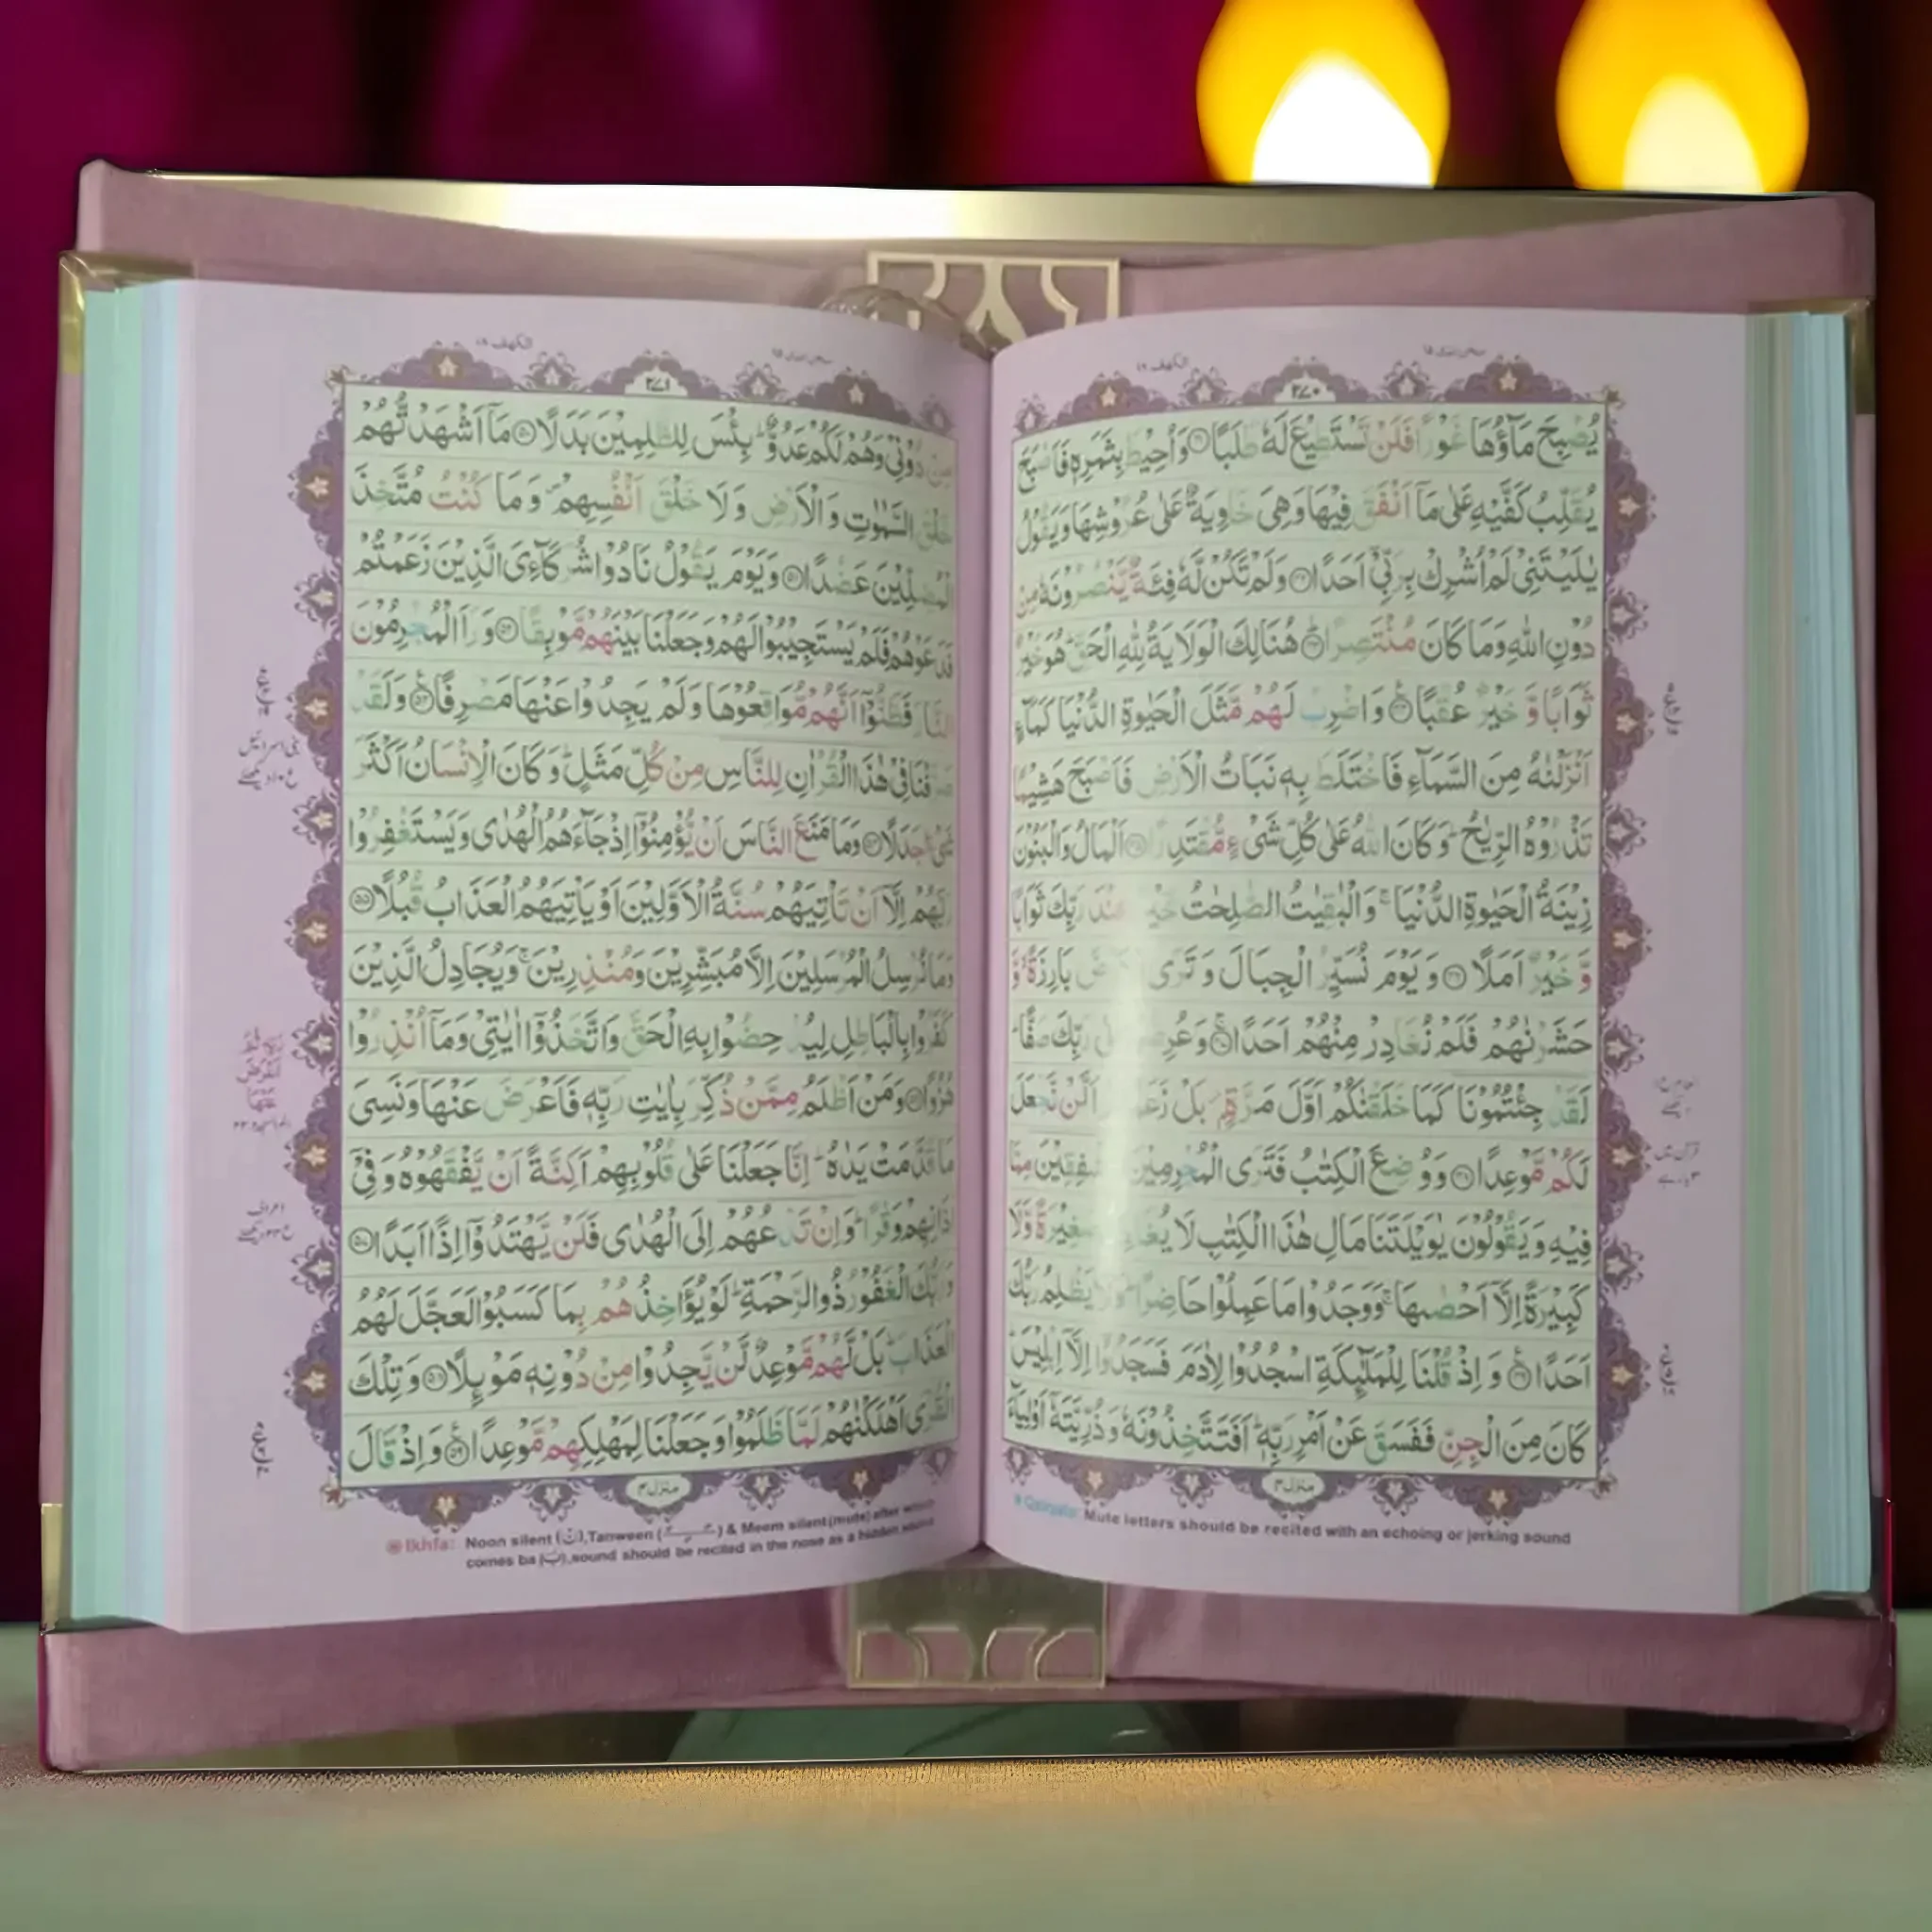 سبحن الذی ١٥
الکهف ١٨
٢٧٠
يُصْبِحَ مَآؤُهَا غَوْرًا فَلَنْ تَسْتَطِيْعَ لَهٗ طَلَبًا ۝٤١ وَاُحِيْطَ بِثَمَرِهٖ فَاَصْبَحَ
يُقَلِّبُ كَفَّيْهِ عَلٰى مَآ اَنْفَقَ فِيْهَا وَهِيَ خَاوِيَةٌ عَلٰى عُرُوْشِهَا وَيَقُوْلُ
يٰلَيْتَنِيْ لَمْ اُشْرِكْ بِرَبِّيْٓ اَحَدًا ۝٤٢ وَلَمْ تَكُنْ لَّهٗ فِئَةٌ يَّنْصُرُوْنَهٗ مِنْ
دُوْنِ اللّٰهِ وَمَا كَانَ مُنْتَصِرًا ۝٤٣ هُنَالِكَ الْوَلَايَةُ لِلّٰهِ الْحَقِّ ؕ هُوَ خَيْرٌ
ثَوَابًا وَّ خَيْرٌ عُقْبًا ۝٤٤ وَاضْرِبْ لَهُمْ مَّثَلَ الْحَيٰوةِ الدُّنْيَا كَمَآءٍ
اَنْزَلْنٰهُ مِنَ السَّمَآءِ فَاخْتَلَطَ بِهٖ نَبَاتُ الْاَرْضِ فَاَصْبَحَ هَشِيْمًا
تَذْرُوْهُ الرِّيٰحُ ؕ وَكَانَ اللّٰهُ عَلٰى كُلِّ شَيْءٍ مُّقْتَدِرًا ۝٤٥ اَلْمَالُ وَالْبَنُوْنَ
زِيْنَةُ الْحَيٰوةِ الدُّنْيَا ۚ وَالْبٰقِيٰتُ الصّٰلِحٰتُ خَيْرٌ عِنْدَ رَبِّكَ ثَوَابًا
وَّ خَيْرٌ اَمَلًا ۝٤٦ وَيَوْمَ نُسَيِّرُ الْجِبَالَ وَتَرَى الْاَرْضَ بَارِزَةً ۙ وَّ
حَشَرْنٰهُمْ فَلَمْ نُغَادِرْ مِنْهُمْ اَحَدًا ۝٤٧ وَعُرِضُوْا عَلٰى رَبِّكَ صَفًّا ؕ
لَقَدْ جِئْتُمُوْنَا كَمَا خَلَقْنٰكُمْ اَوَّلَ مَرَّةٍۭ بَلْ زَعَمْتُمْ اَلَّنْ نَّجْعَلَ
لَكُمْ مَّوْعِدًا ۝٤٨ وَوُضِعَ الْكِتٰبُ فَتَرَى الْمُجْرِمِيْنَ مُشْفِقِيْنَ مِمَّا
فِيْهِ وَيَقُوْلُوْنَ يٰوَيْلَتَنَا مَالِ هٰذَا الْكِتٰبِ لَا يُغَادِرُ صَغِيْرَةً وَّلَا
كَبِيْرَةً اِلَّآ اَحْصٰىهَا ۚ وَوَجَدُوْا مَا عَمِلُوْا حَاضِرًا ؕ وَلَا يَظْلِمُ رَبُّكَ
اَحَدًا ۝٤٩ وَاِذْ قُلْنَا لِلْمَلٰٓئِكَةِ اسْجُدُوْا لِاٰدَمَ فَسَجَدُوْٓا اِلَّآ اِبْلِيْسَ ؕ
كَانَ مِنَ الْجِنِّ فَفَسَقَ عَنْ اَمْرِ رَبِّهٖ ؕ اَفَتَتَّخِذُوْنَهٗ وَذُرِّيَّتَهٗٓ اَوْلِيَآءَ
منزل ٤
Qalqala: Mute letters should be recited with an echoing or jerking sound
سبحن الذی ١٥
الکهف ١٨
٢٧١
مِنْ دُوْنِيْ وَهُمْ لَكُمْ عَدُوٌّ ؕ بِئْسَ لِلظّٰلِمِيْنَ بَدَلًا ۝٥٠ مَآ اَشْهَدْتُّهُمْ
خَلْقَ السَّمٰوٰتِ وَالْاَرْضِ وَلَا خَلْقَ اَنْفُسِهِمْ ۪ وَمَا كُنْتُ مُتَّخِذَ
الْمُضِلِّيْنَ عَضُدًا ۝٥١ وَيَوْمَ يَقُوْلُ نَادُوْا شُرَكَآءِيَ الَّذِيْنَ زَعَمْتُمْ
فَدَعَوْهُمْ فَلَمْ يَسْتَجِيْبُوْا لَهُمْ وَجَعَلْنَا بَيْنَهُمْ مَّوْبِقًا ۝٥٢ وَرَاَ الْمُجْرِمُوْنَ
النَّارَ فَظَنُّوْٓا اَنَّهُمْ مُّوَاقِعُوْهَا وَلَمْ يَجِدُوْا عَنْهَا مَصْرِفًا ۝٥٣ وَلَقَدْ
صَرَّفْنَا فِيْ هٰذَا الْقُرْاٰنِ لِلنَّاسِ مِنْ كُلِّ مَثَلٍ ؕ وَكَانَ الْاِنْسَانُ اَكْثَرَ
شَيْءٍ جَدَلًا ۝٥٤ وَمَا مَنَعَ النَّاسَ اَنْ يُّؤْمِنُوْٓا اِذْ جَآءَهُمُ الْهُدٰى وَيَسْتَغْفِرُوْا
رَبَّهُمْ اِلَّآ اَنْ تَاْتِيَهُمْ سُنَّةُ الْاَوَّلِيْنَ اَوْ يَاْتِيَهُمُ الْعَذَابُ قُبُلًا ۝٥٥
وَمَا نُرْسِلُ الْمُرْسَلِيْنَ اِلَّا مُبَشِّرِيْنَ وَمُنْذِرِيْنَ ۚ وَيُجَادِلُ الَّذِيْنَ
كَفَرُوْا بِالْبَاطِلِ لِيُدْحِضُوْا بِهِ الْحَقَّ وَاتَّخَذُوْٓا اٰيٰتِيْ وَمَآ اُنْذِرُوْا
هُزُوًا ۝٥٦ وَمَنْ اَظْلَمُ مِمَّنْ ذُكِّرَ بِاٰيٰتِ رَبِّهٖ فَاَعْرَضَ عَنْهَا وَنَسِيَ
مَا قَدَّمَتْ يَدٰهُ ؕ اِنَّا جَعَلْنَا عَلٰى قُلُوْبِهِمْ اَكِنَّةً اَنْ يَّفْقَهُوْهُ وَفِيْٓ
اٰذَانِهِمْ وَقْرًا ؕ وَاِنْ تَدْعُهُمْ اِلَى الْهُدٰى فَلَنْ يَّهْتَدُوْٓا اِذًا اَبَدًا ۝٥٧
وَرَبُّكَ الْغَفُوْرُ ذُو الرَّحْمَةِ ؕ لَوْ يُؤَاخِذُهُمْ بِمَا كَسَبُوْا لَعَجَّلَ لَهُمُ
الْعَذَابَ ؕ بَلْ لَّهُمْ مَّوْعِدٌ لَّنْ يَّجِدُوْا مِنْ دُوْنِهٖ مَوْئِلًا ۝٥٨ وَتِلْكَ
الْقُرٰٓى اَهْلَكْنٰهُمْ لَمَّا ظَلَمُوْا وَجَعَلْنَا لِمَهْلِكِهِمْ مَّوْعِدًا ۝٥٩ وَاِذْ قَالَ
منزل ٤
Ikhfa: Noon silent (نْ),Tanween ( ) & Meem silent(mute) after which
comes ba (ب),sound should be recited in the nose as a hidden sound